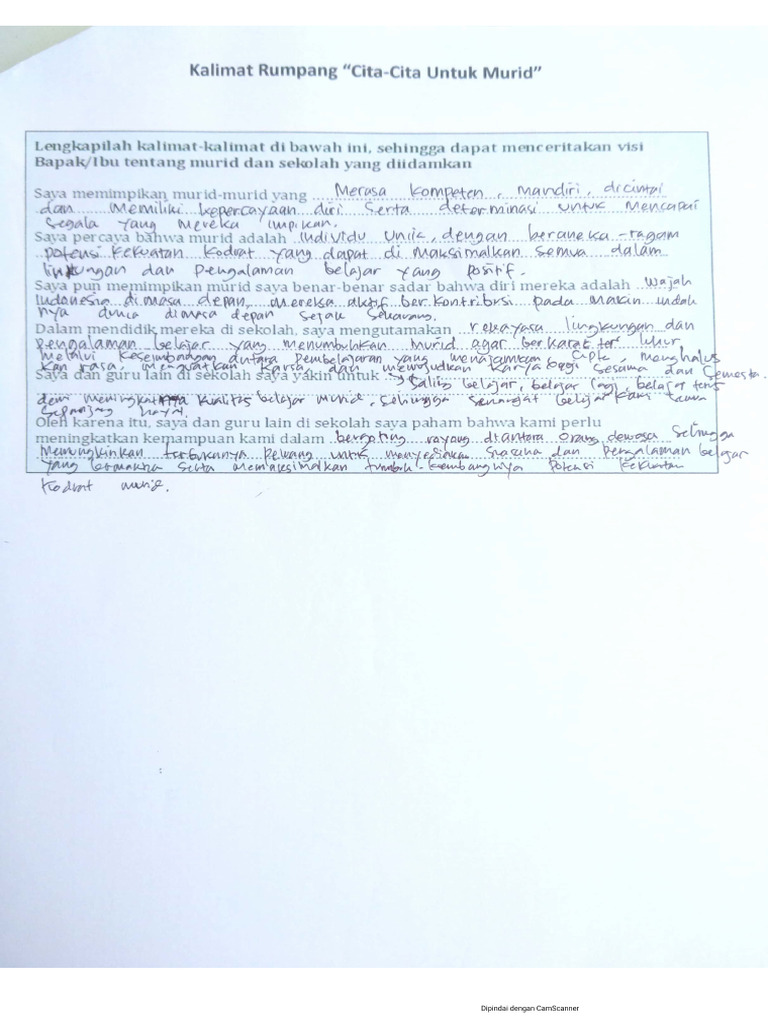 Kalimat Rumpang “Cita-Cita Untuk Murid”
Lengkapilah kalimat-kalimat di bawah ini, sehingga dapat menceritakan visi
Bapak/Ibu tentang murid dan sekolah yang diidamkan
Saya memimpikan murid-murid yang Merasa kompeten, mandiri, dicintai
dan memiliki kepercayaan diri serta determinasi untuk mencapai
segala yang mereka impikan.
Saya percaya bahwa murid adalah individu unik, dengan beraneka-ragam
potensi kekuatan kodrat yang dapat di maksimalkan semua dalam
lingkungan dan pengalaman belajar yang positif.
Saya pun memimpikan murid saya benar-benar sadar bahwa diri mereka adalah wajah
Indonesia di masa depan, mereka aktif berkontribusi pada makin indah
nya dunia di masa depan sejak sekarang.
Dalam mendidik mereka di sekolah, saya mengutamakan rekayasa lingkungan dan
pengalaman belajar yang menumbuhkan murid agar berkarakter luhur
melalui keseimbangan antara pembelajaran yang menajamkan cipta, menghalus
kan rasa, menguatkan karsa, dan mewujudkan karya bagi sesama dan semesta.
Saya dan guru lain di sekolah saya yakin untuk saling belajar, belajar lagi, belajar terus
demi meningkatnya kualitas belajar murid, sehingga semangat belajar kami
sepanjang hayat.
Oleh karena itu, saya dan guru lain di sekolah saya paham bahwa kami perlu
meningkatkan kemampuan kami dalam bergotong royong diantara orang dewasa sehingga
memungkinkan terbukanya peluang untuk menyediakan suasana dan pengalaman belajar
yang bermakna serta memaksimalkan tumbuh-kembangnya potensi kekuatan
kodrat murid.
Dipindai dengan CamScanner